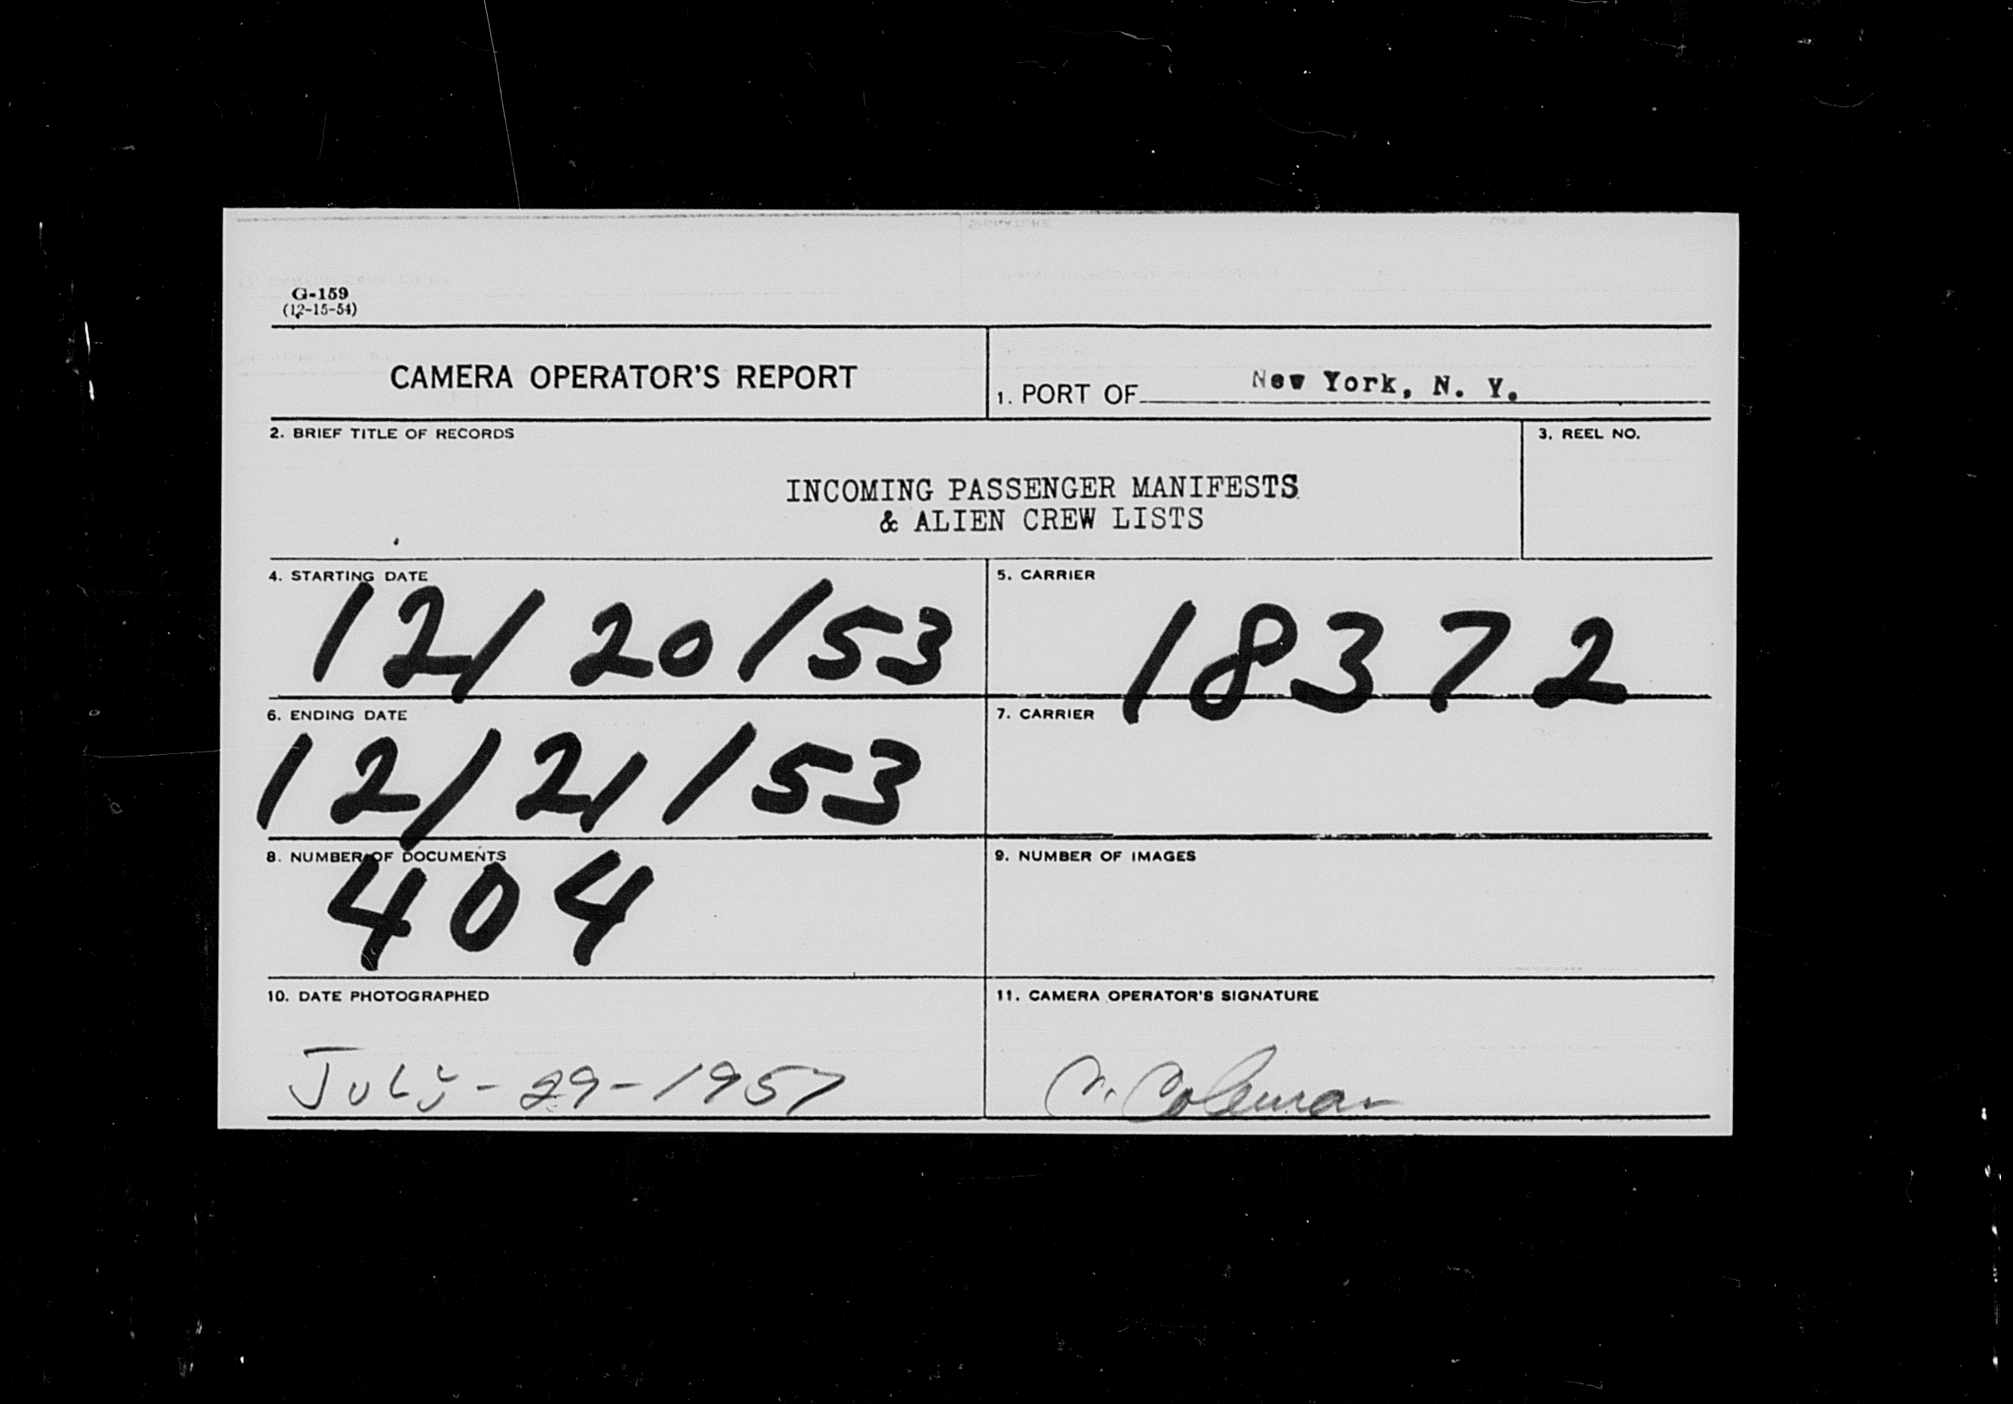 G-159
(12-15-54)
CAMERA OPERATOR'S REPORT
1. PORT OF New York, N. Y.
2. BRIEF TITLE OF RECORDS
3. REEL NO.
INCOMING PASSENGER MANIFESTS
& ALIEN CREW LISTS
4. STARTING DATE
12/20/53
5. CARRIER
18372
6. ENDING DATE
12/21/53
7. CARRIER
8. NUMBER OF DOCUMENTS
404
9. NUMBER OF IMAGES
10. DATE PHOTOGRAPHED
July-29-1957
11. CAMERA OPERATOR'S SIGNATURE
Coleman